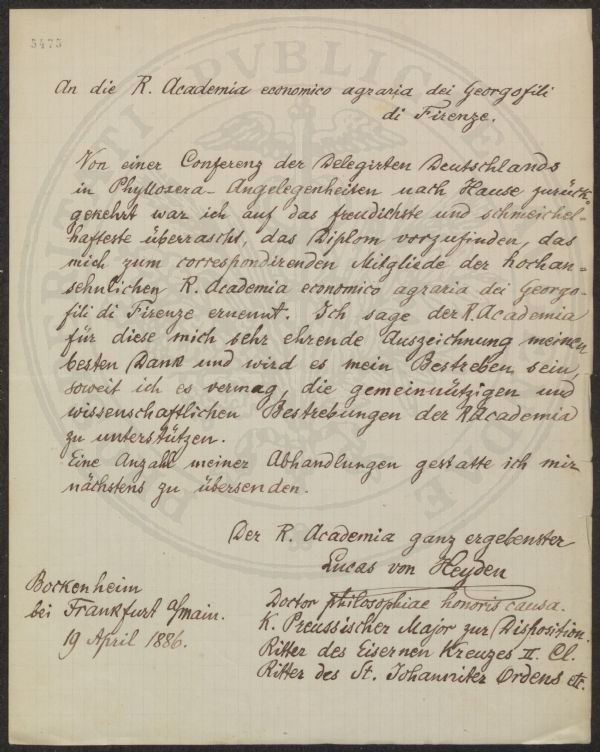 5475
An die R. Academia economico agraria dei Georgofili
di Firenze.
Von einer Conferenz der Delegirten Deutschlands
in Phylloxera-Angelegenheiten nach Hause zurück-
gekehrt war ich auf das freudichste und schmeichel-
hafteste überrascht, das Diplom vorzufinden, das
mich zum correspondirenden Mitgliede der hochan-
sehnlichen R. Academia economico agraria dei Georgo-
fili di Firenze ernennt. Ich sage der R. Academia
für diese mich sehr ehrende Auszeichnung meinen
besten Dank und wird es mein Bestreben sein,
soweit ich es vermag, die gemeinnützigen und
wissenschaftlichen Bestrebungen der R Academia
zu unterstützen.
Eine Anzahl meiner Abhandlungen gestatte ich mir
nächstens zu übersenden.
Der R. Academia ganz ergebenster
Lucas von Heyden
Doctor philosophiae honoris causa.
K. Preussischer Major zur Disposition.
Ritter des Eisernen Kreuzes II. Cl.
Ritter des St. Johanniter Ordens etc.
Bockenheim
bei Frankfurt a/main.
19 April 1886.